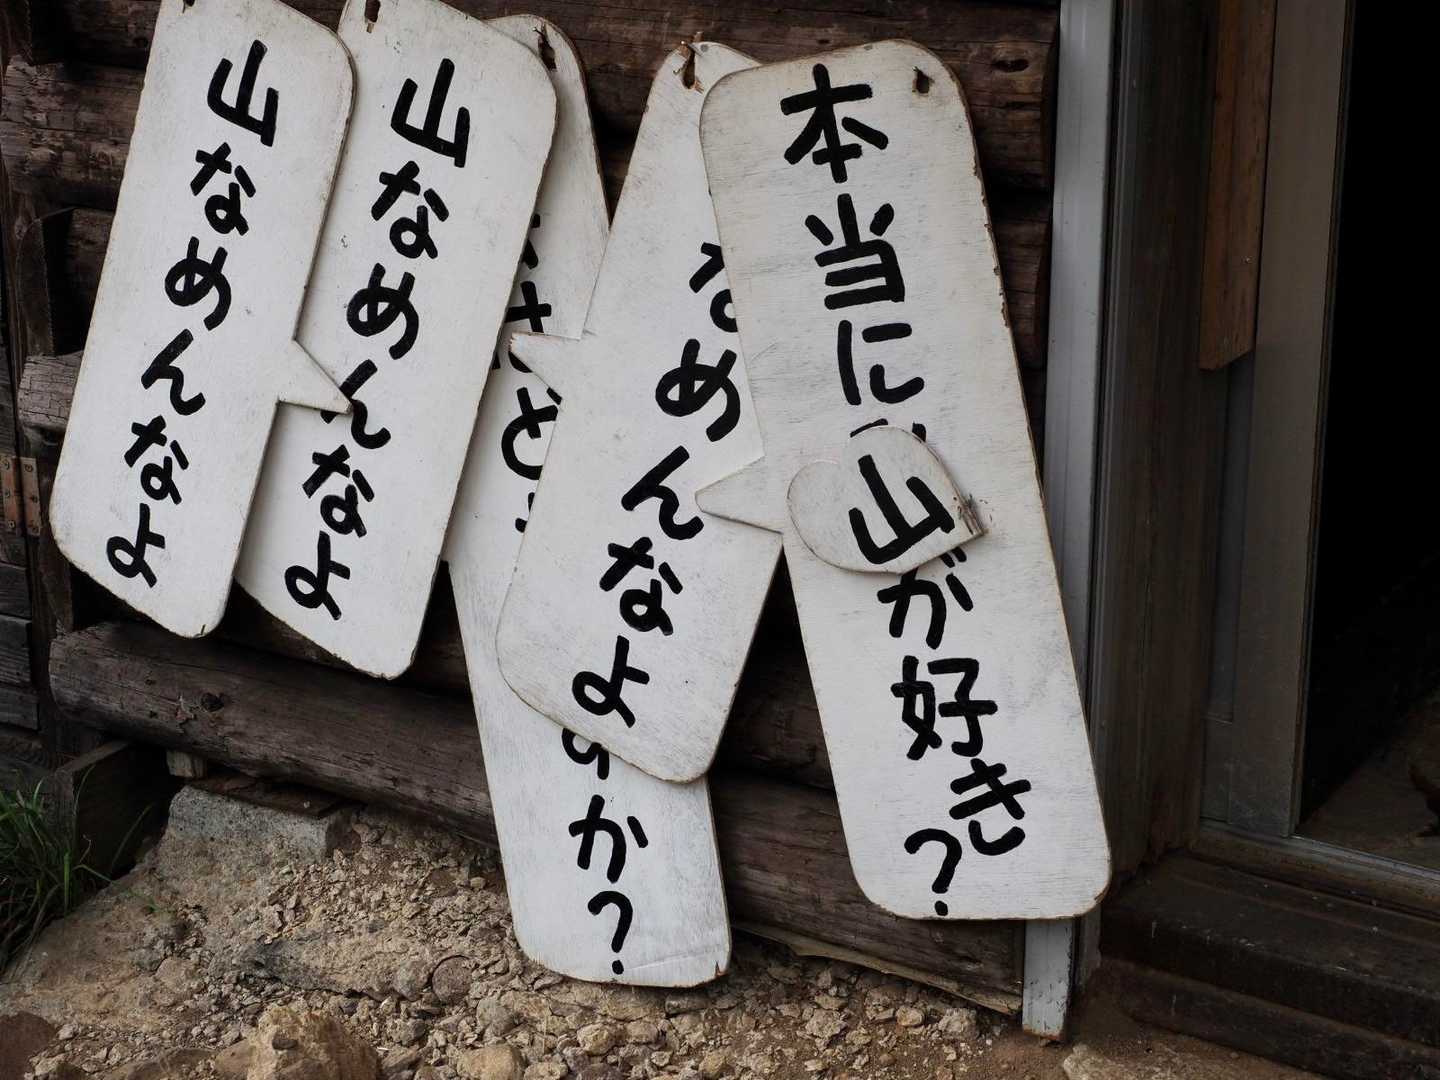 本当に山が好き?
なめんなよ
か?
山なめんなよ
山なめんなよ